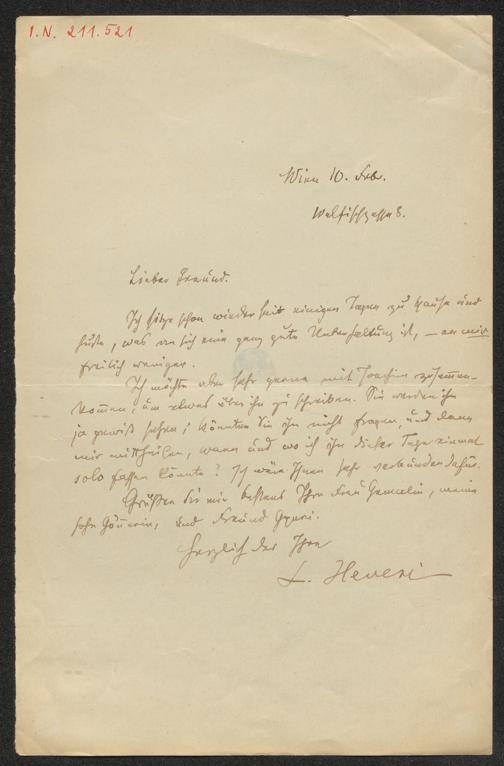 I.N. 211.521
Wien 10. Febr.
Wallfischgasse 8.
Lieber Freund.
Ich sitze schon wieder seit einigen Tagen zu Hause und
huste, was an sich eine ganz gute Unterhaltung ist, — an mir
freilich weniger.
Ich möchte aber sehr gerne mit Joachim zusammen-
kommen, um etwas über ihn zu schreiben. Sie werden ihn
ja gewiß sehen; könnten Sie ihn nicht fragen, und dann
mir mittheilen, wann und wo ich ihn dieser Tage einmal
solo fassen könnte? Ich wäre Ihnen sehr verbunden dafür.
Grüßen Sie mir bestens Ihre Frau Gemalin, meine
hohe Gönnerin, und Freund
Herzlich der Ihre
L. Hevesi